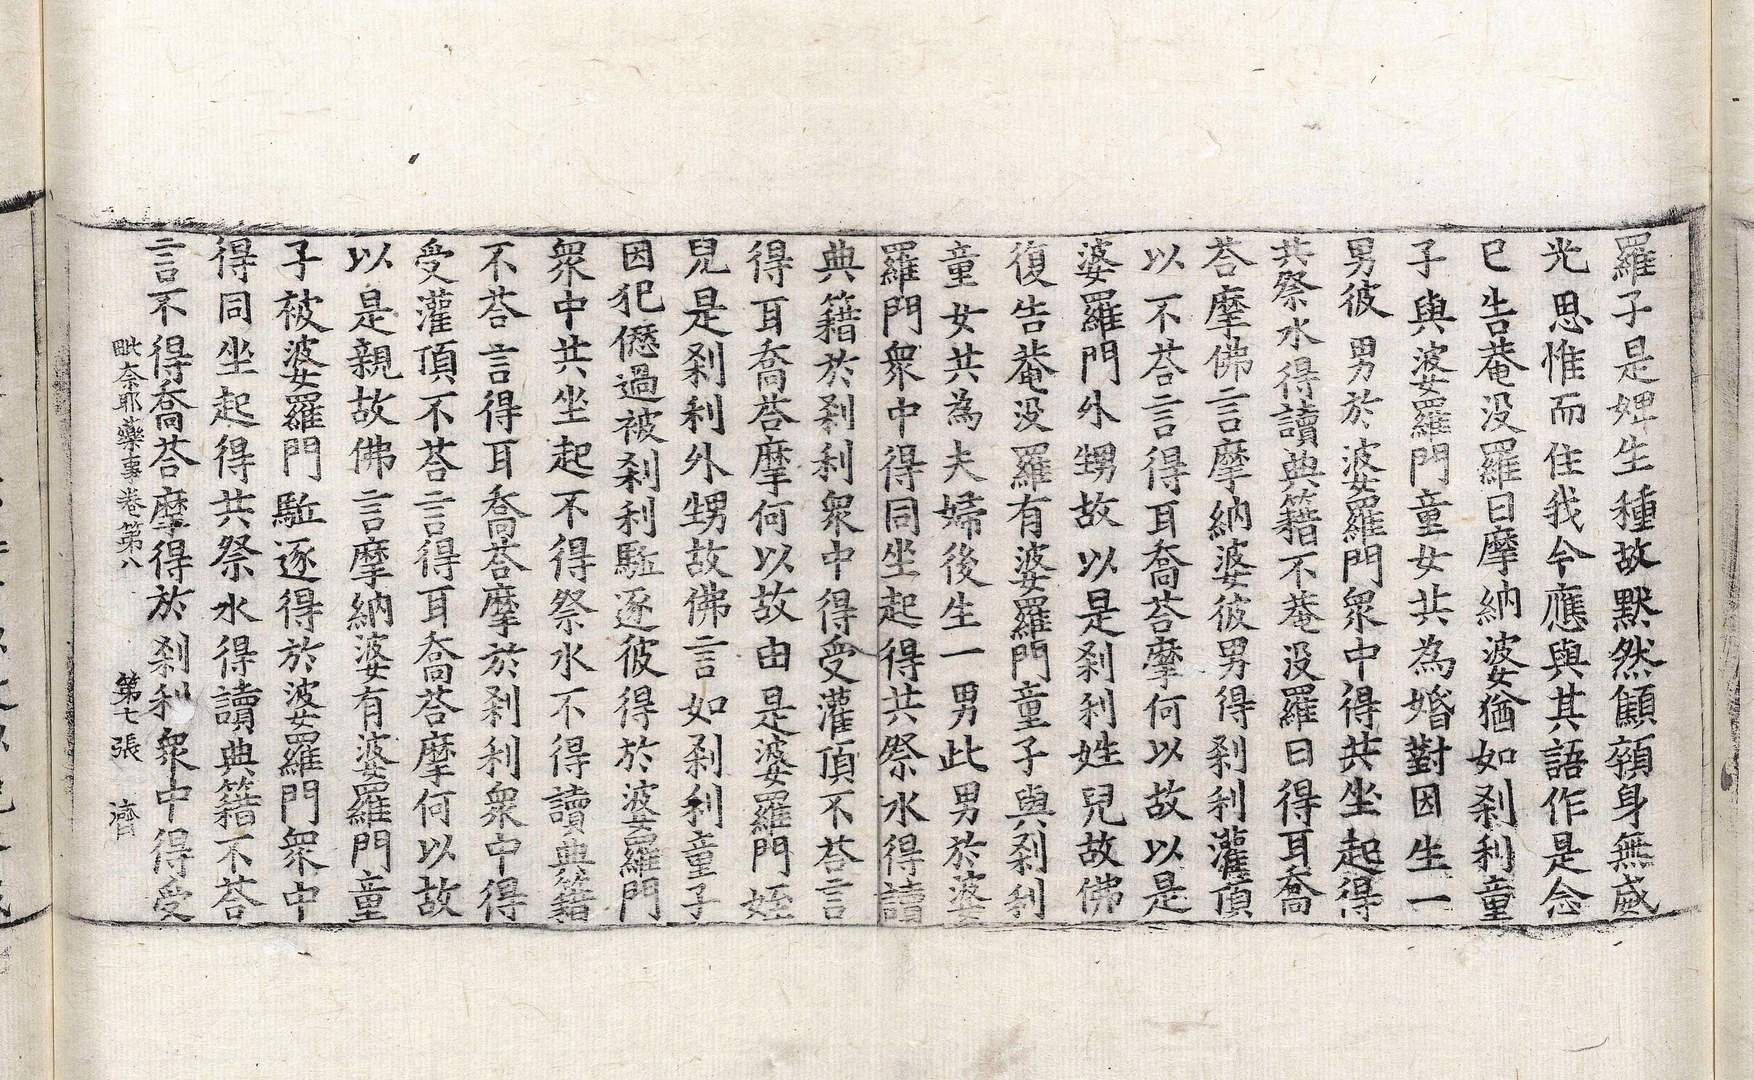 羅子是婢生種故默然顦顇身無威
光思惟而住我今應與其語作是念
已告菴没羅曰摩納婆猶如刹利童
子與婆羅門童女共為婚對因生一
男彼男於婆羅門衆中得共坐起得
共祭水得讀典籍不菴没羅曰得耳喬
荅摩佛言摩納婆彼男得刹利灌頂
以不荅言得耳喬荅摩何以故以是
婆羅門外甥故以是刹利姓兒故佛
復告菴没羅有婆羅門童子與刹利
童女共為夫婦後生一男此男於婆
羅門衆中得同坐起得共祭水得讀
典籍於刹利衆中得受灌頂不荅言
得耳喬荅摩何以故由是婆羅門姪
兒是刹利外甥故佛言如刹利童子
因犯僽過被刹利駈逐彼得於婆羅門
衆中共坐起不得祭水不得讀典籍
不荅言得耳喬荅摩於刹利衆中得
受灌頂不荅言得耳喬荅摩何以故
以是親故佛言摩納婆有婆羅門童
子被婆羅門駈逐得於婆羅門衆中
得同坐起得共祭水得讀典籍不荅
言不得喬荅摩得於刹利衆中得受
毗奈耶藥事卷第八 第七張 濟